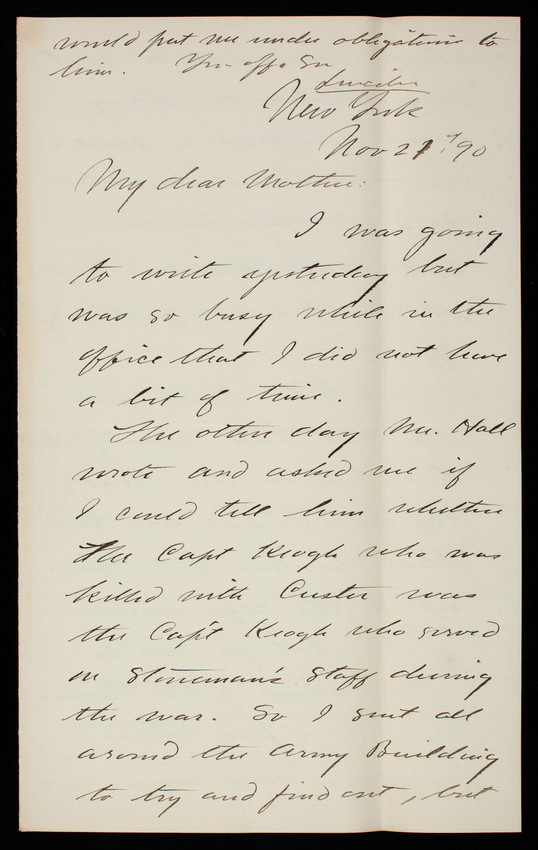 would put me under obligations to
him. Yr. aff. Son
Lincoln
New York
Nov 21st, '90
My dear Mother:
I was going
to write yesterday but
was so busy while in the
office that I did not have
a bit of time.
The other day Mr. Hall
wrote and asked me if
I could tell him whether
the Capt Keogh who was
killed with Custer was
the Capt Keogh who served
on Stoneman's Staff during
the war. So I sent all
around the Army Building
to try and find out, but